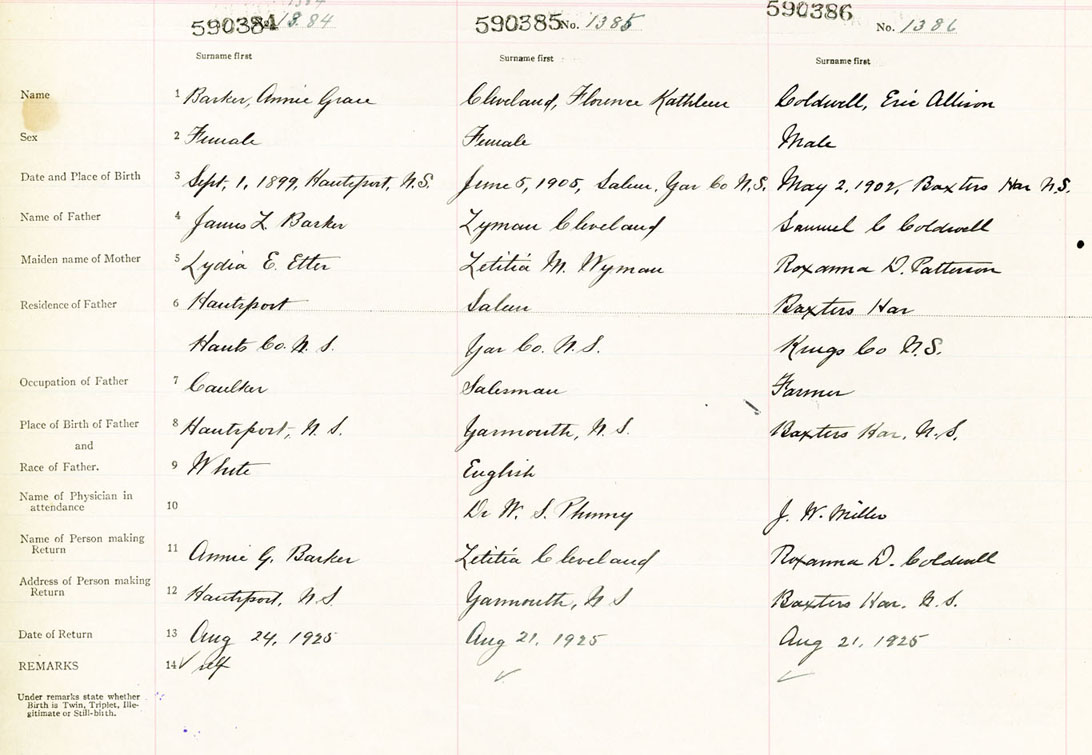 590384 No. 1384 590385 No. 1385 590386 No. 1386
Surname first Surname first Surname first
Name 1 Barker, Annie Grace Cleveland, Florence Kathleen Coldwell, Eric Allison
Sex 2 Female Female Male
Date and Place of Birth 3 Sept, 1, 1899, Hantsport, N.S. June 5, 1905, Salem, Yar Co N.S. May 2, 1902, Baxters Har N.S.
Name of Father 4 James L Barker Lyman Cleveland Samuel C Coldwell
Maiden name of Mother 5 Lydia E. Etter Letitia M. Wyman Roxanna D. Patterson
Residence of Father 6 Hantsport Salem Baxters Har
Hants Co. N. S. Yar Co. N.S. Kings Co N.S.
Occupation of Father 7 Caulker Salesman Farmer
Place of Birth of Father 8 Hantsport, N. S. Yarmouth, N. S. Baxters Har. N.S.
and
Race of Father. 9 White English
Name of Physician in
attendance 10 Dr W. S. Phinney J. W. Miller
Name of Person making
Return 11 Annie G. Barker Letitia Cleveland Roxanna D. Coldwell
Address of Person making
Return 12 Hantsport, N.S. Yarmouth, N S Baxters Har. N.S.
Date of Return 13 Aug 24, 1925 Aug 21, 1925 Aug 21, 1925
REMARKS 14 ✓ self ✓ ✓
Under remarks state whether
Birth is Twin, Triplet, Ille-
gitimate or Still-birth.